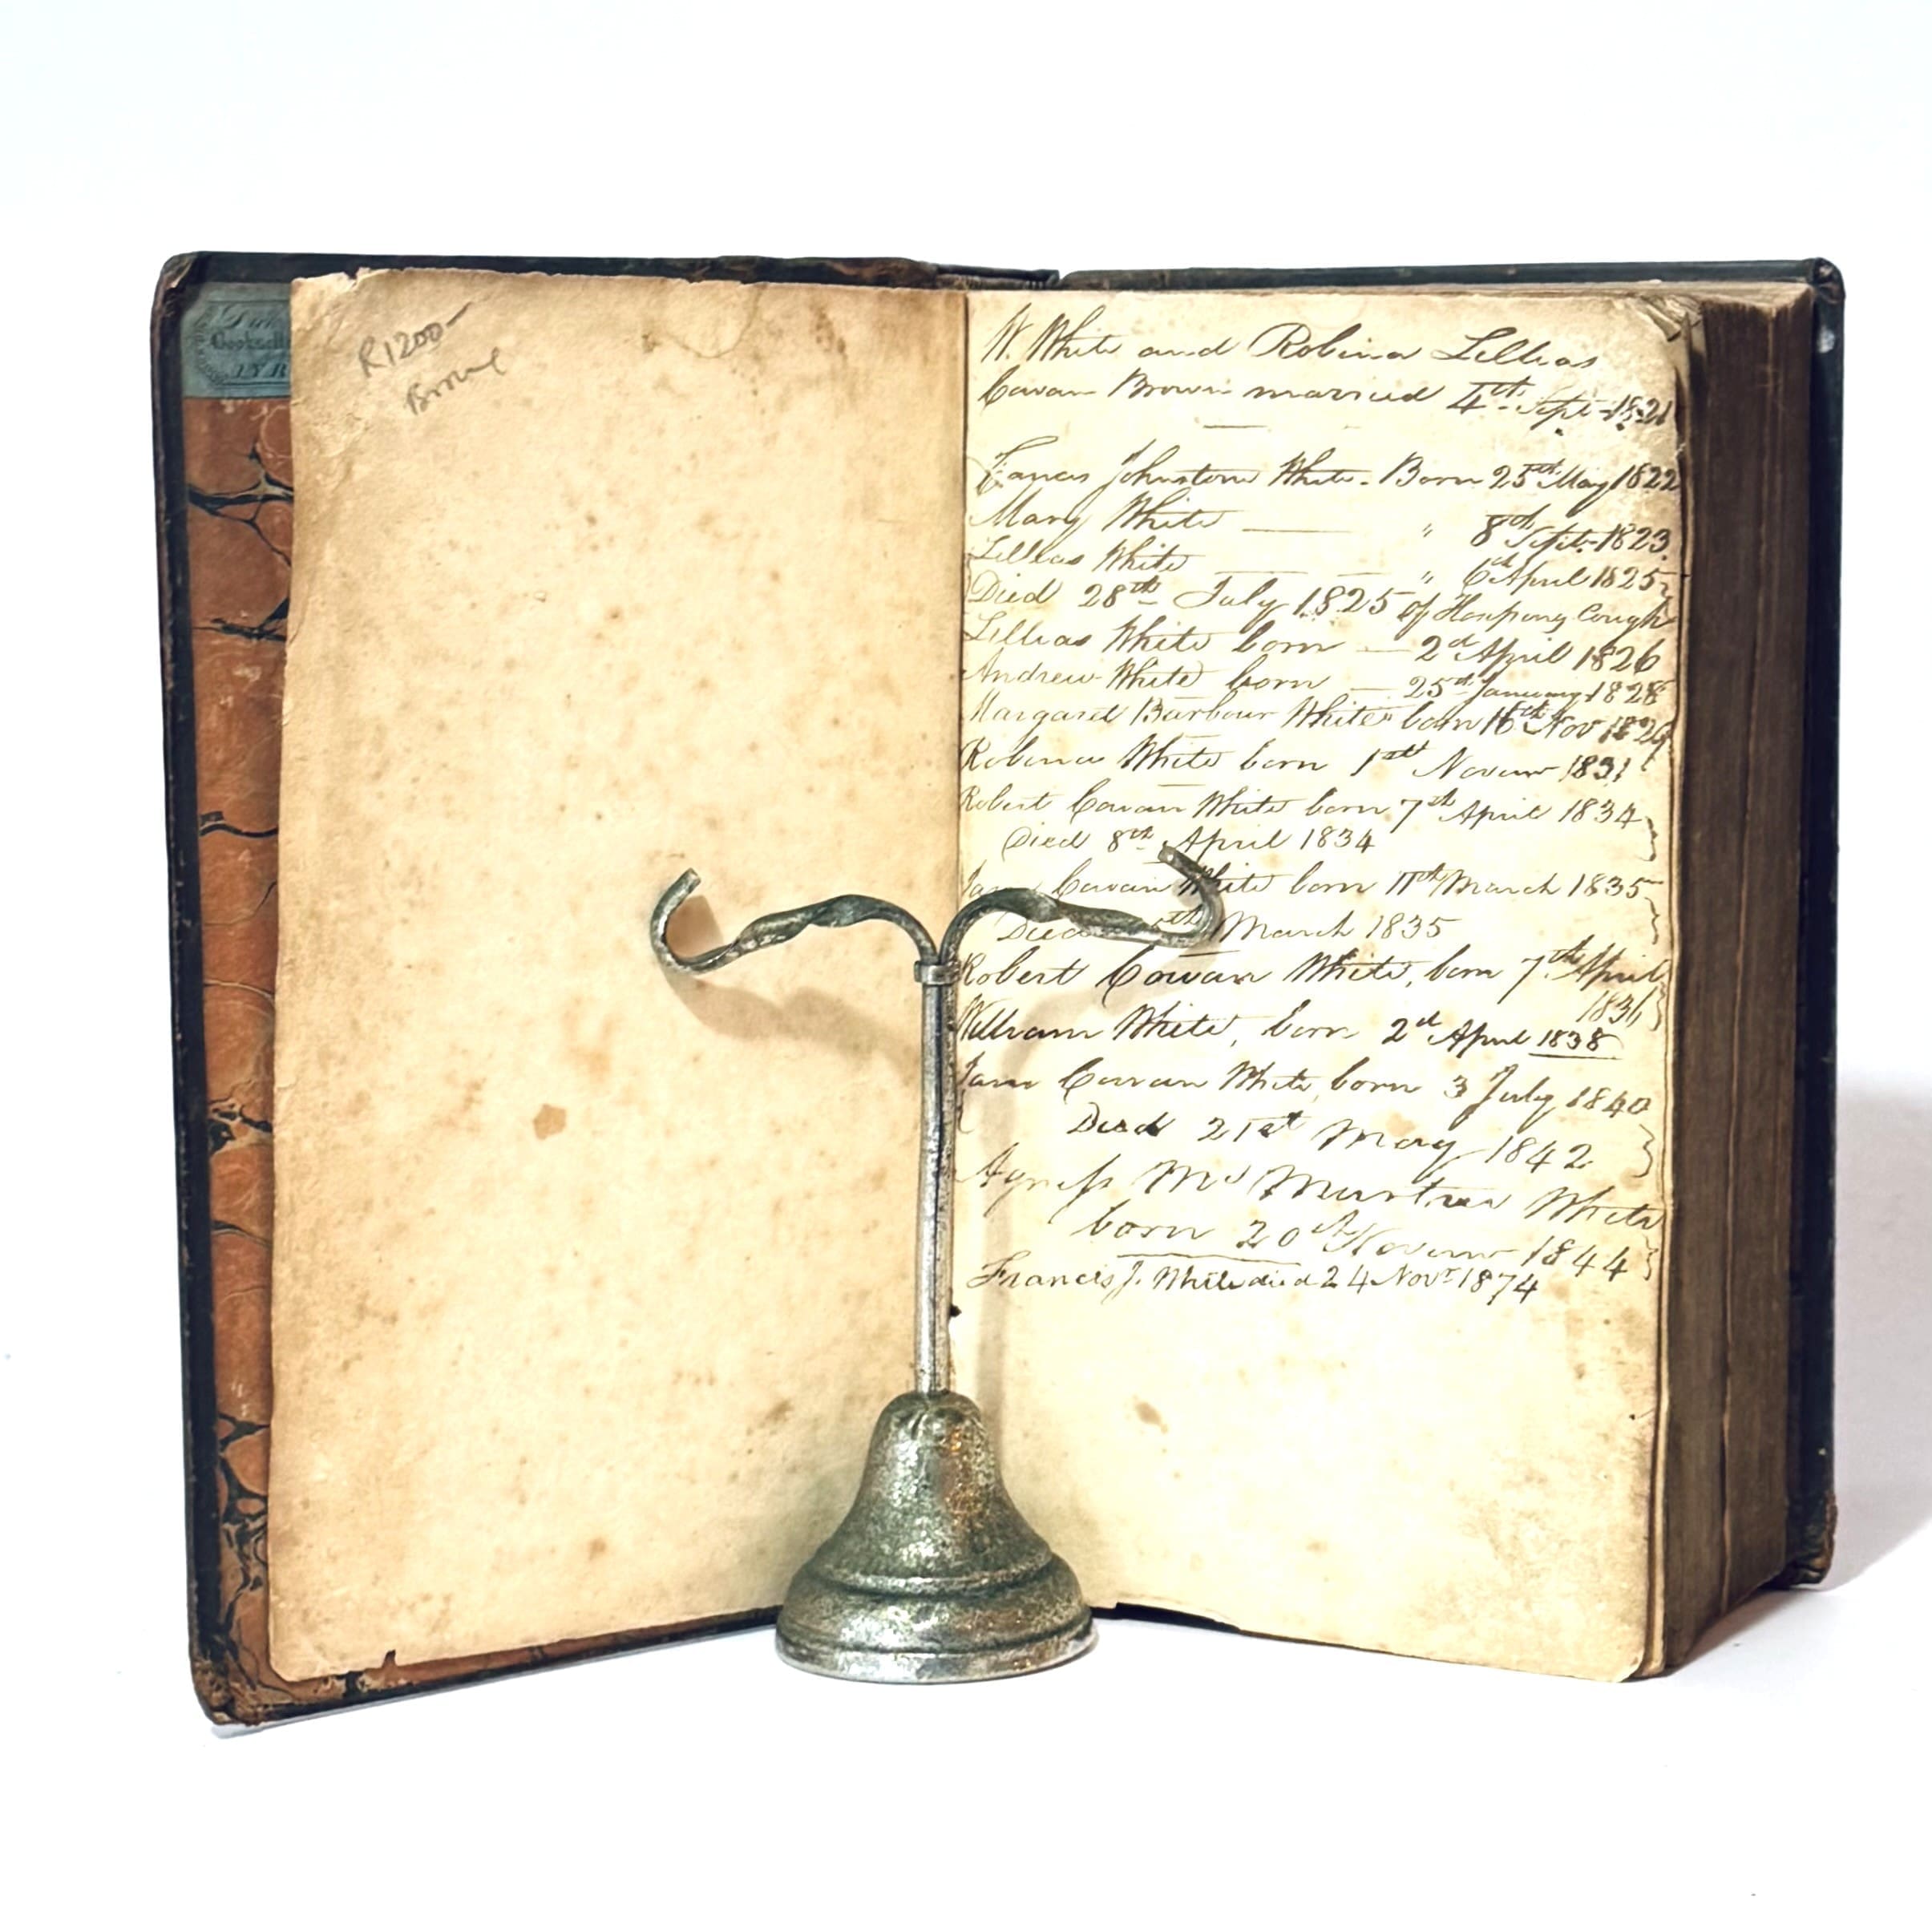 R1200-
Booksell
AYR
W. White and Robina Lillias
Cowan Brown married 4th Sept 1821
Francis Johnstone White - Born 25th May 1822
Mary White " 8th Sept 1823
Lillias White " 6th April 1825
Died 28th July 1825 of Hooping Cough
Lillias White born 2d April 1826
Andrew White born 25th January 1828
Margaret Barbour White born 16th Nov 1829
Robina White born 1st Novemr 1831
Robert Cowan White born 7th April 1834
Died 8th April 1834
Cowan White born 11th March 1835
Died March 1835
Robert Cowan White, born 7th April
1836
William White, born 2d April 1838
Jane Cowan White, born 3 July 1840
Died 21st May 1842
Agness White
born 20th Novemr 1844
Francis J. White died 24 Novr 1874